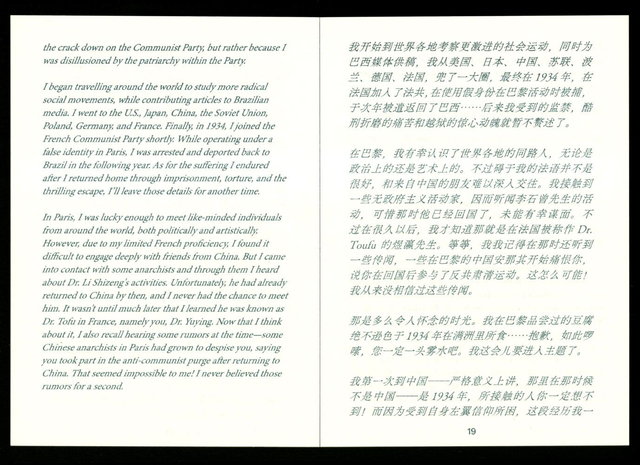 the crack down on the Communist Party, but rather because I
was disillusioned by the patriarchy within the Party.
I began travelling around the world to study more radical
social movements, while contributing articles to Brazilian
media. I went to the U.S., Japan, China, the Soviet Union,
Poland, Germany, and France. Finally, in 1934, I joined the
French Communist Party shortly. While operating under a
false identity in Paris, I was arrested and deported back to
Brazil in the following year. As for the suffering I endured
after I returned home through imprisonment, torture, and the
thrilling escape, I'll leave those details for another time.
In Paris, I was lucky enough to meet like-minded individuals
from around the world, both politically and artistically.
However, due to my limited French proficiency, I found it
difficult to engage deeply with friends from China. But I came
into contact with some anarchists and through them I heard
about Dr. Li Shizeng's activities. Unfortunately, he had already
returned to China by then, and I never had the chance to meet
him. It wasn't until much later that I learned he was known as
Dr. Tofu in France, namely you, Dr. Yuying. Now that I think
about it, I also recall hearing some rumors at the time—some
Chinese anarchists in Paris had grown to despise you, saying
you took part in the anti-communist purge after returning to
China. That seemed impossible to me! I never believed those
rumors for a second.
我开始到世界各地考察更激进的社会运动，同时为
巴西媒体供稿。我从美国、日本、中国、苏联、波
兰、德国、法国，兜了一大圈，最终在 1934 年，在
法国加入了法共，在使用假身份在巴黎活动时被捕，
于次年被遣返回了巴西……后来我受到的监禁，酷
刑折磨的痛苦和越狱的惊心动魄就暂不赘述了。
在巴黎，我有幸认识了世界各地的同路人，无论是
政治上的还是艺术上的。不过碍于我的法语并不是
很好，和来自中国的朋友难以深入交往。我接触到
一些无政府主义活动家，因而听闻李石曾先生的活
动，可惜那时他已经回国了，未能有幸谋面。不
过在很久以后，我才知道那就是在法国被称作 Dr.
Toufu 的煜瀛先生。等等，我我记得在那时还听到
一些传闻，一些在巴黎的中国安那其开始痛恨你，
说你在回国后参与了反共肃清运动。这怎么可能！
我从来没相信过这些传闻。
那是多么令人怀念的时光。我在巴黎品尝过的豆腐
绝不逊色于 1934 年在满洲里所食……抱歉，如此啰
嗦，您一定一头雾水吧。我这会儿要进入主题了。
我第一次到中国——严格意义上讲，那里在那时候
不是中国——是 1934 年，所接触的人你一定想不
到！而因为受到自身左翼信仰所困，这段经历我一
19